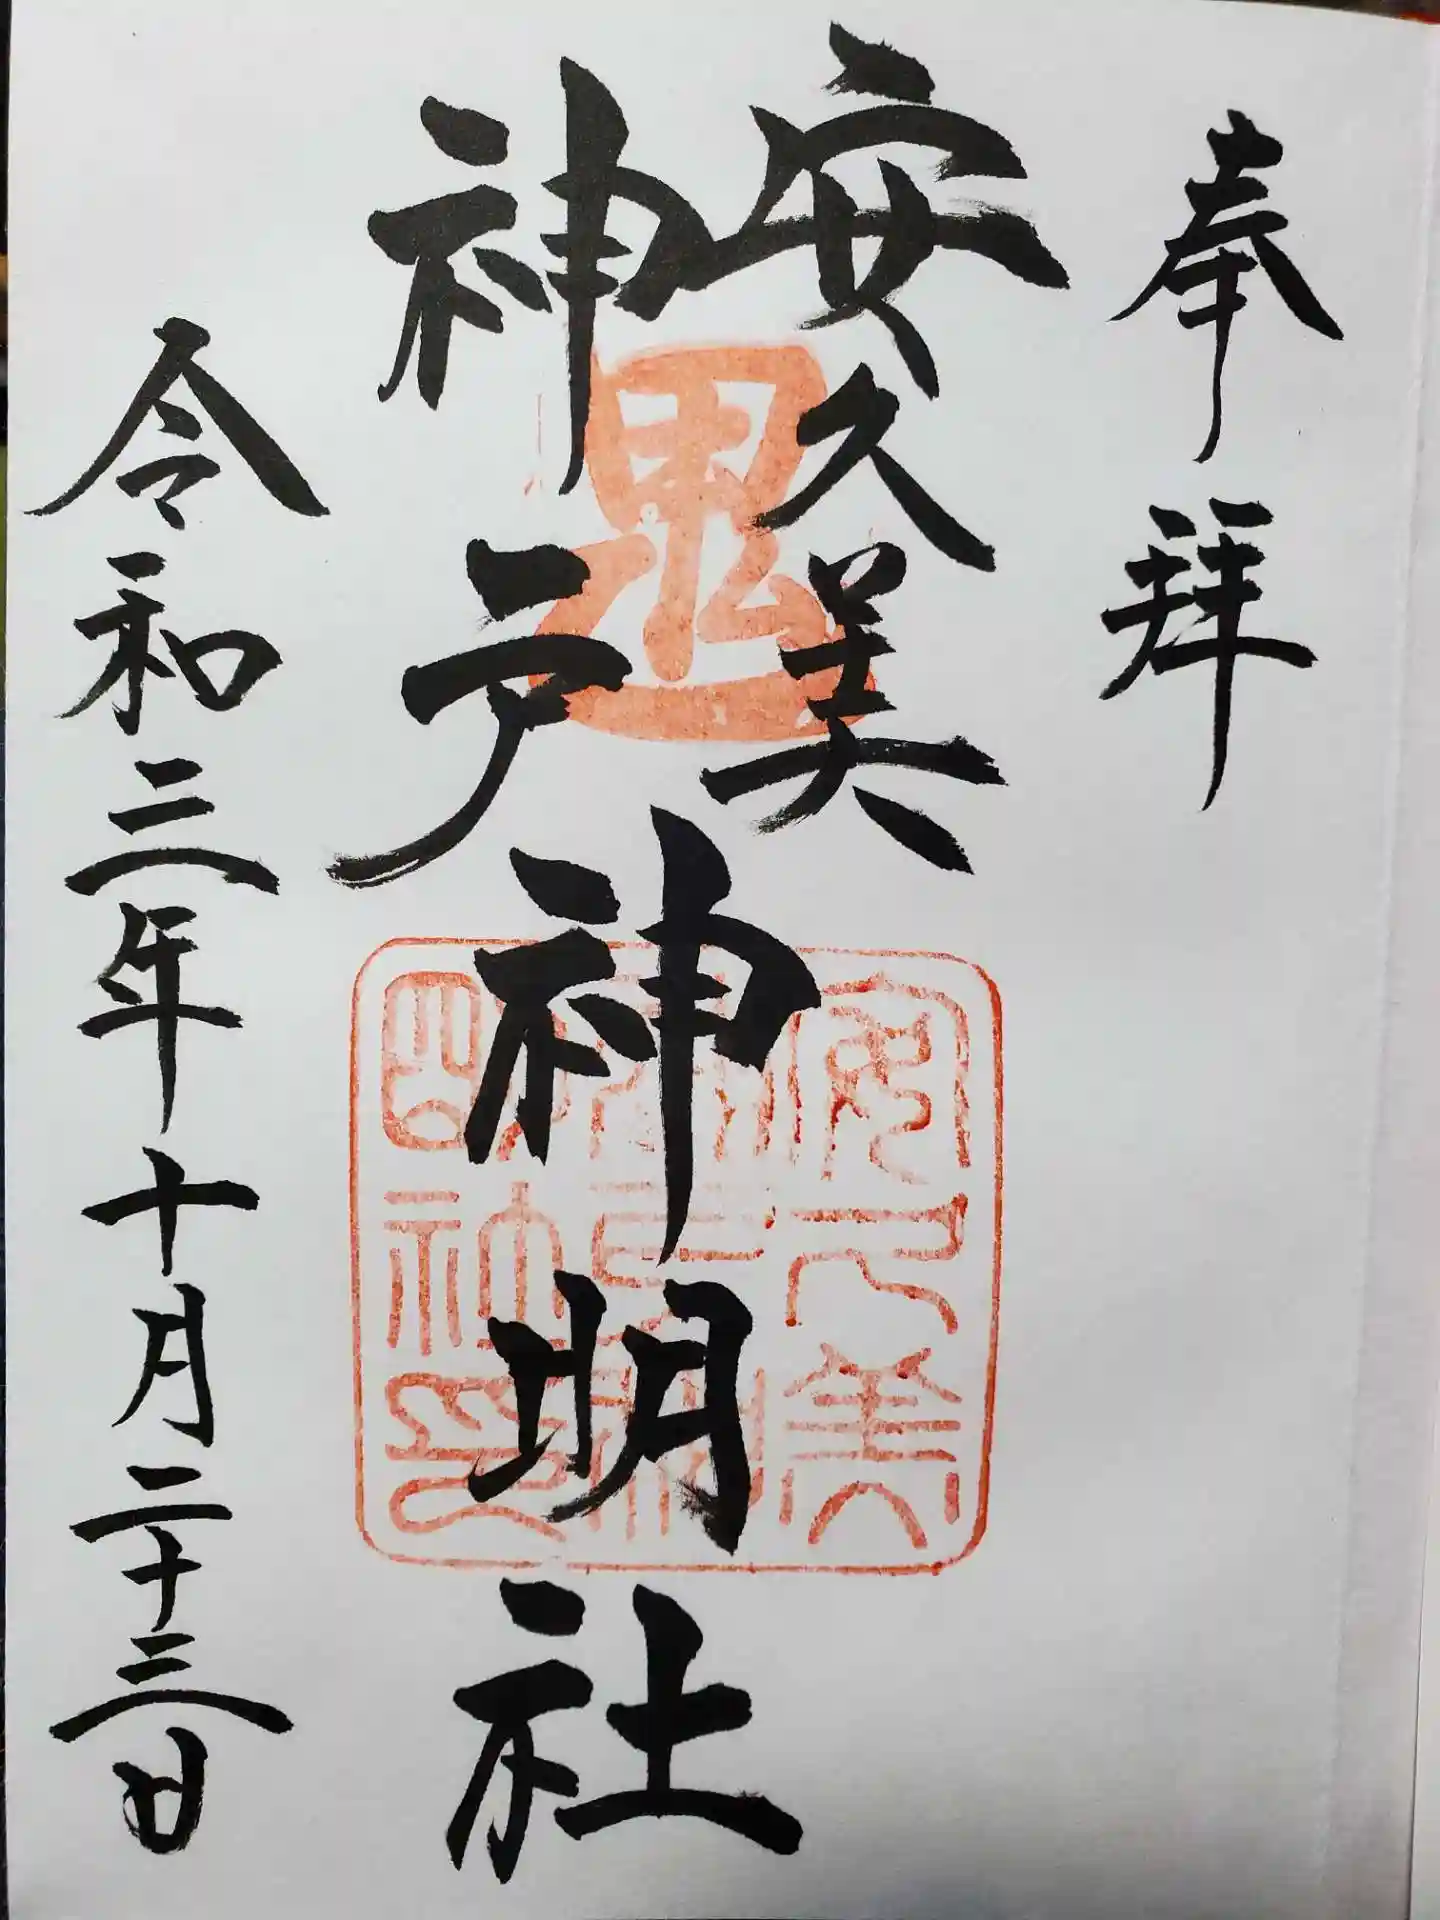 奉拝
安久美
神戸
神明社
鬼
安久美
神戸神
明社印
令和三年十月二十三日